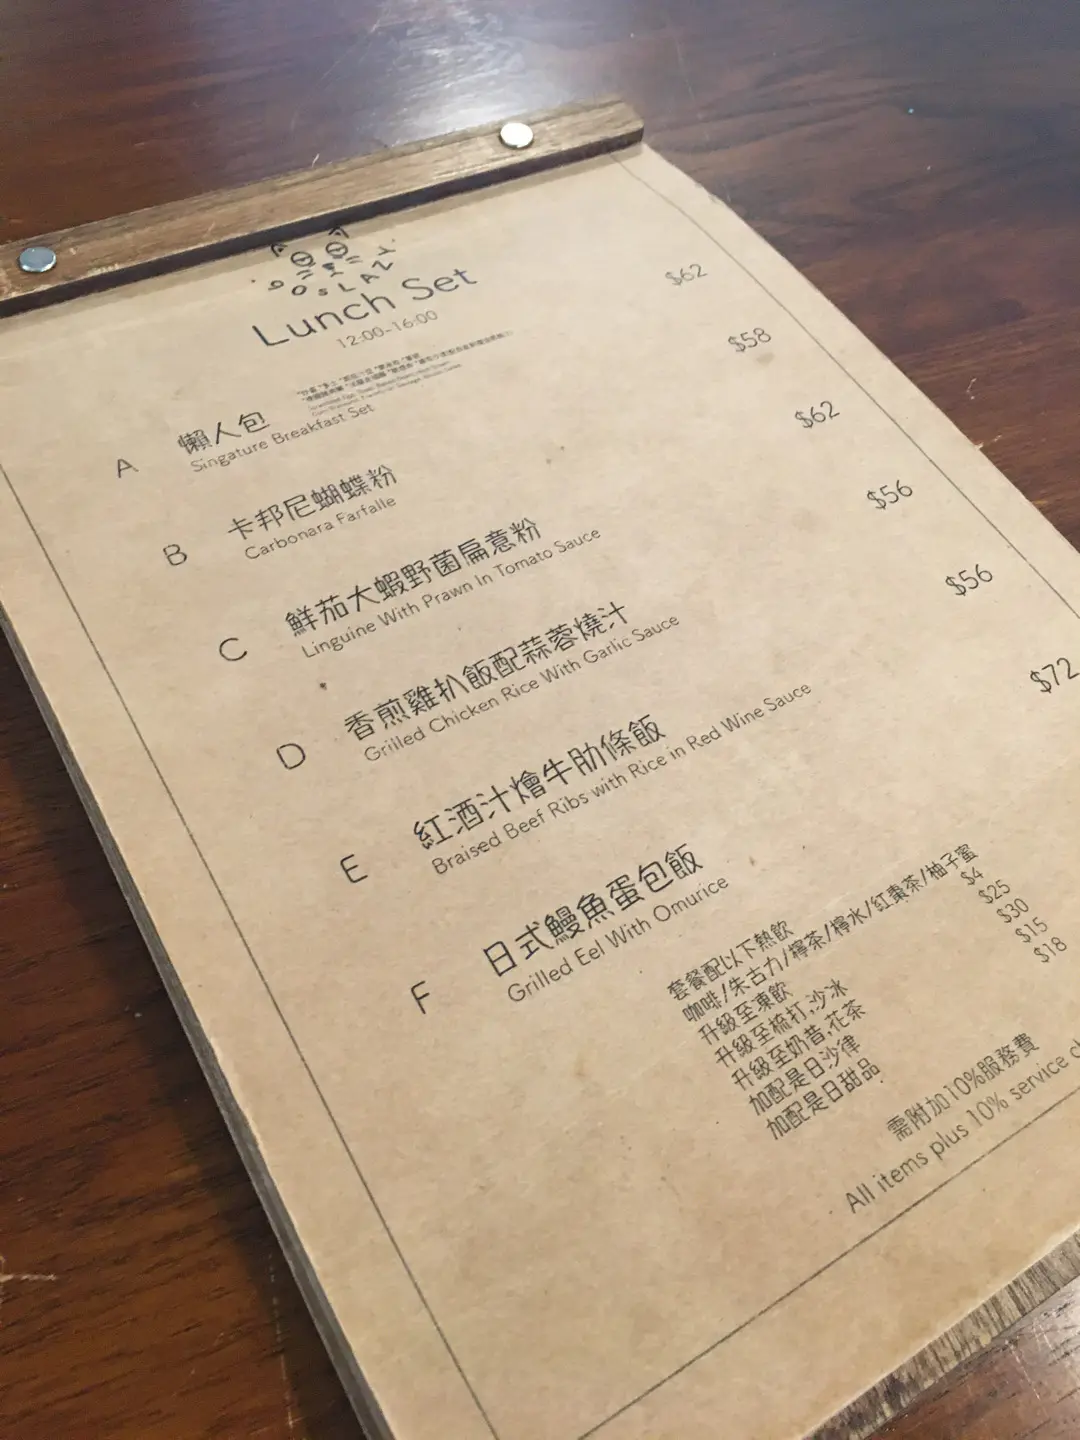 DOSLAZY.
Lunch Set
12:00-16:00
A 懶人包 $62
Singature Breakfast Set
B 卡邦尼蝴蝶粉 $58
Carbonara Farfalle
C 鮮茄大蝦野菌扁意粉 $62
Linguine With Prawn In Tomato Sauce
D 香煎雞扒飯配蒜蓉燒汁 $56
Grilled Chicken Rice With Garlic Sauce
E 紅酒汁燴牛肋條飯 $56
Braised Beef Ribs with Rice in Red Wine Sauce
F 日式鰻魚蛋包飯 $72
Grilled Eel With Omurice
套餐配以下熱飲
咖啡/朱古力/檸茶/檸水/紅棗茶/柚子蜜
升級至凍飲 $4
升級至梳打,沙冰 $25
升級至奶昔,花茶 $30
加配是日沙律 $15
加配是日甜品 $18
需附加10%服務費
All items plus 10% service